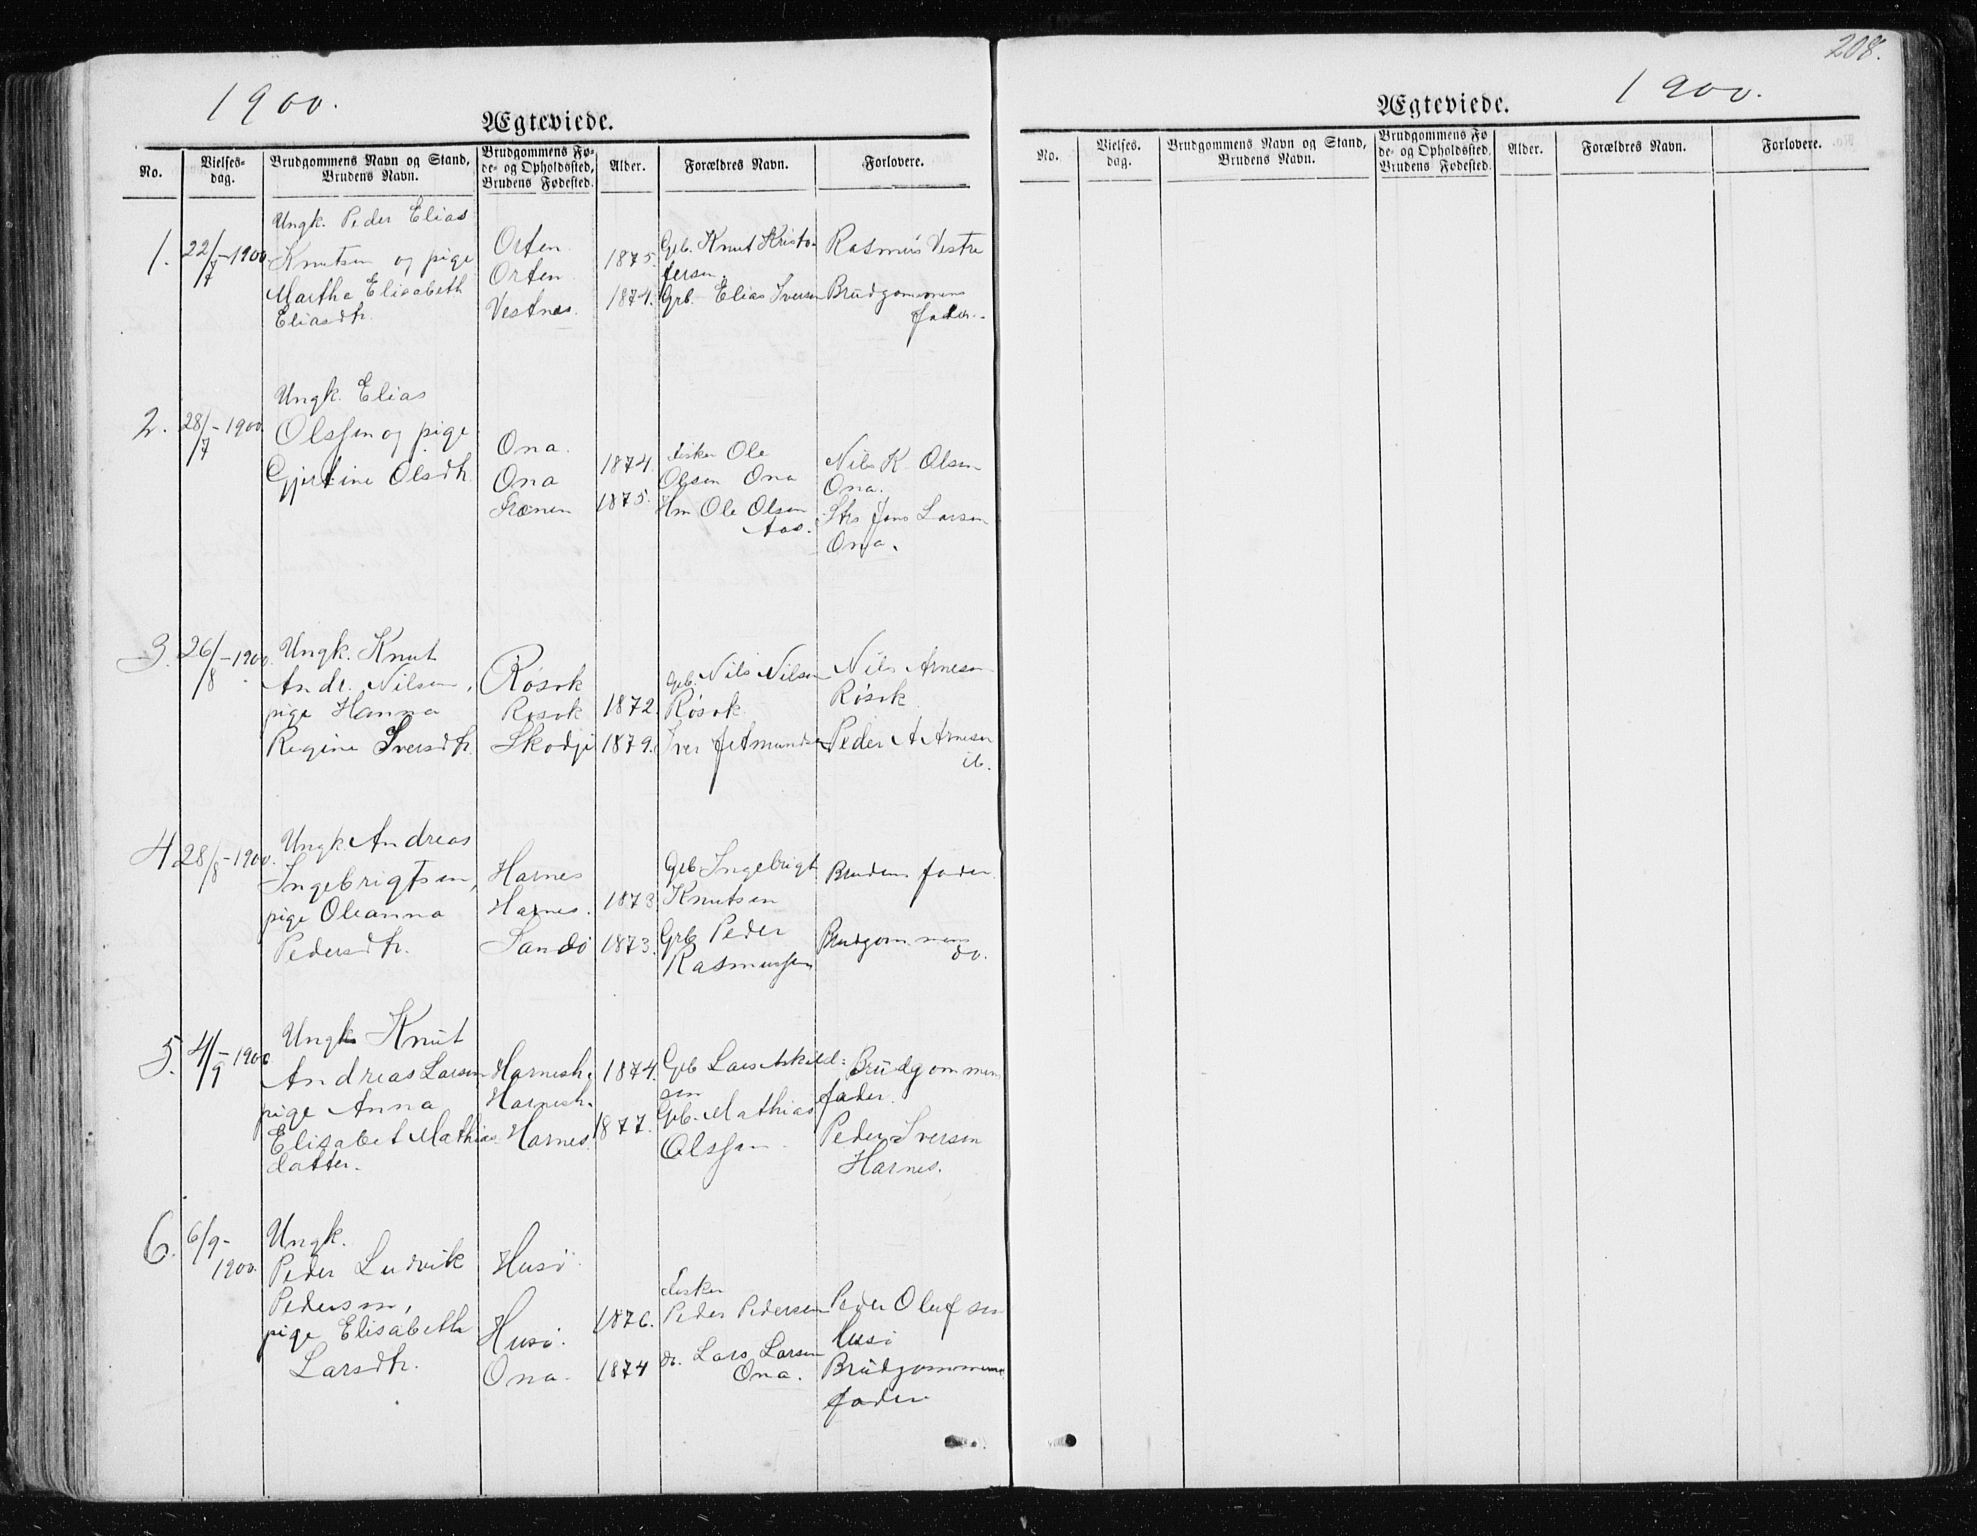 1900.
Ægteviede.
No.
Vielses-
dag.
Brudgommens Navn og Stand,
Brudens Navn.
Brudgommens Fø-
de- og Opholdssted,
Brudens Fødested.
Alder.
Forældres Navn.
Forlovere.
1. 22/7-1900.
Ungk. Peder Elias
Knutsen og pige
Martha Elisabeth
Eliasdtr.
Orten
Orten
Vestnes.
1875.
1874.
Grb. Knut Kristo-
fersen.
Grb. Elias Iversen
Rasmus Vestre
Brudgommens
fader.
2. 28/7-1900.
Ungk. Elias
Olssen og pige
Gjertine Olsdtr.
Ona.
Ona
Frænen
1874.
1875.
fisker Ole
Olsen Ona
Hm Ole Olsen
Aas.
Nils K. Olsen
Ona.
Jens Larsen
Ona.
3. 26/8-1900.
Ungk. Knut
Andr. Nilsen,
pige Hanna
Regine Iversdtr.
Røsok
Røsok
Skodje
1872.
1879.
Grb. Nils Nilsen
Røsok
Iver Amundsen
Nils Arnesen
Røsok
Peder A Arnesen
ib.
4. 28/8-1900.
Ungk. Andreas
Ingebrigtsen,
pige Oleanna
Pedersdtr.
Harnes
Harnes.
Sandø
1873
1873.
Grb. Ingebrigt
Knutsen
Grb. Peder
Rasmussen
Brudens fader
Brudgommens
do.
5. 4/9-1900
Ungk. Knut
Andreas Larsen
pige Anna
Elisabet Mathias-
datter.
Harnesh.
Harnesh.
Harnes.
1874.
1877.
Grb. Lars Askild-
sen
Grb. Mathias
Olssen
Brudgommens
fader.
Peder Iversen
Harnes.
6. 6/9-
1900.
Ungk.
Peder Ludvik
Pedersen,
pige Elisabeth
Larsdtr.
Husø.
Husø.
Ona.
1876.
1874
fisker
Peder Pedersen
do. Lars Larsen
Ona.
Peder Olufsen
Husø
Brudgommens
fader
208.
Ægteviede.
1900.
No.
Vielses-
dag.
Brudgommens Navn og Stand,
Brudens Navn.
Brudgommens Fø
de- og Opholdssted,
Brudens Fødested.
Alder.
Forældres Navn.
Forlovere.